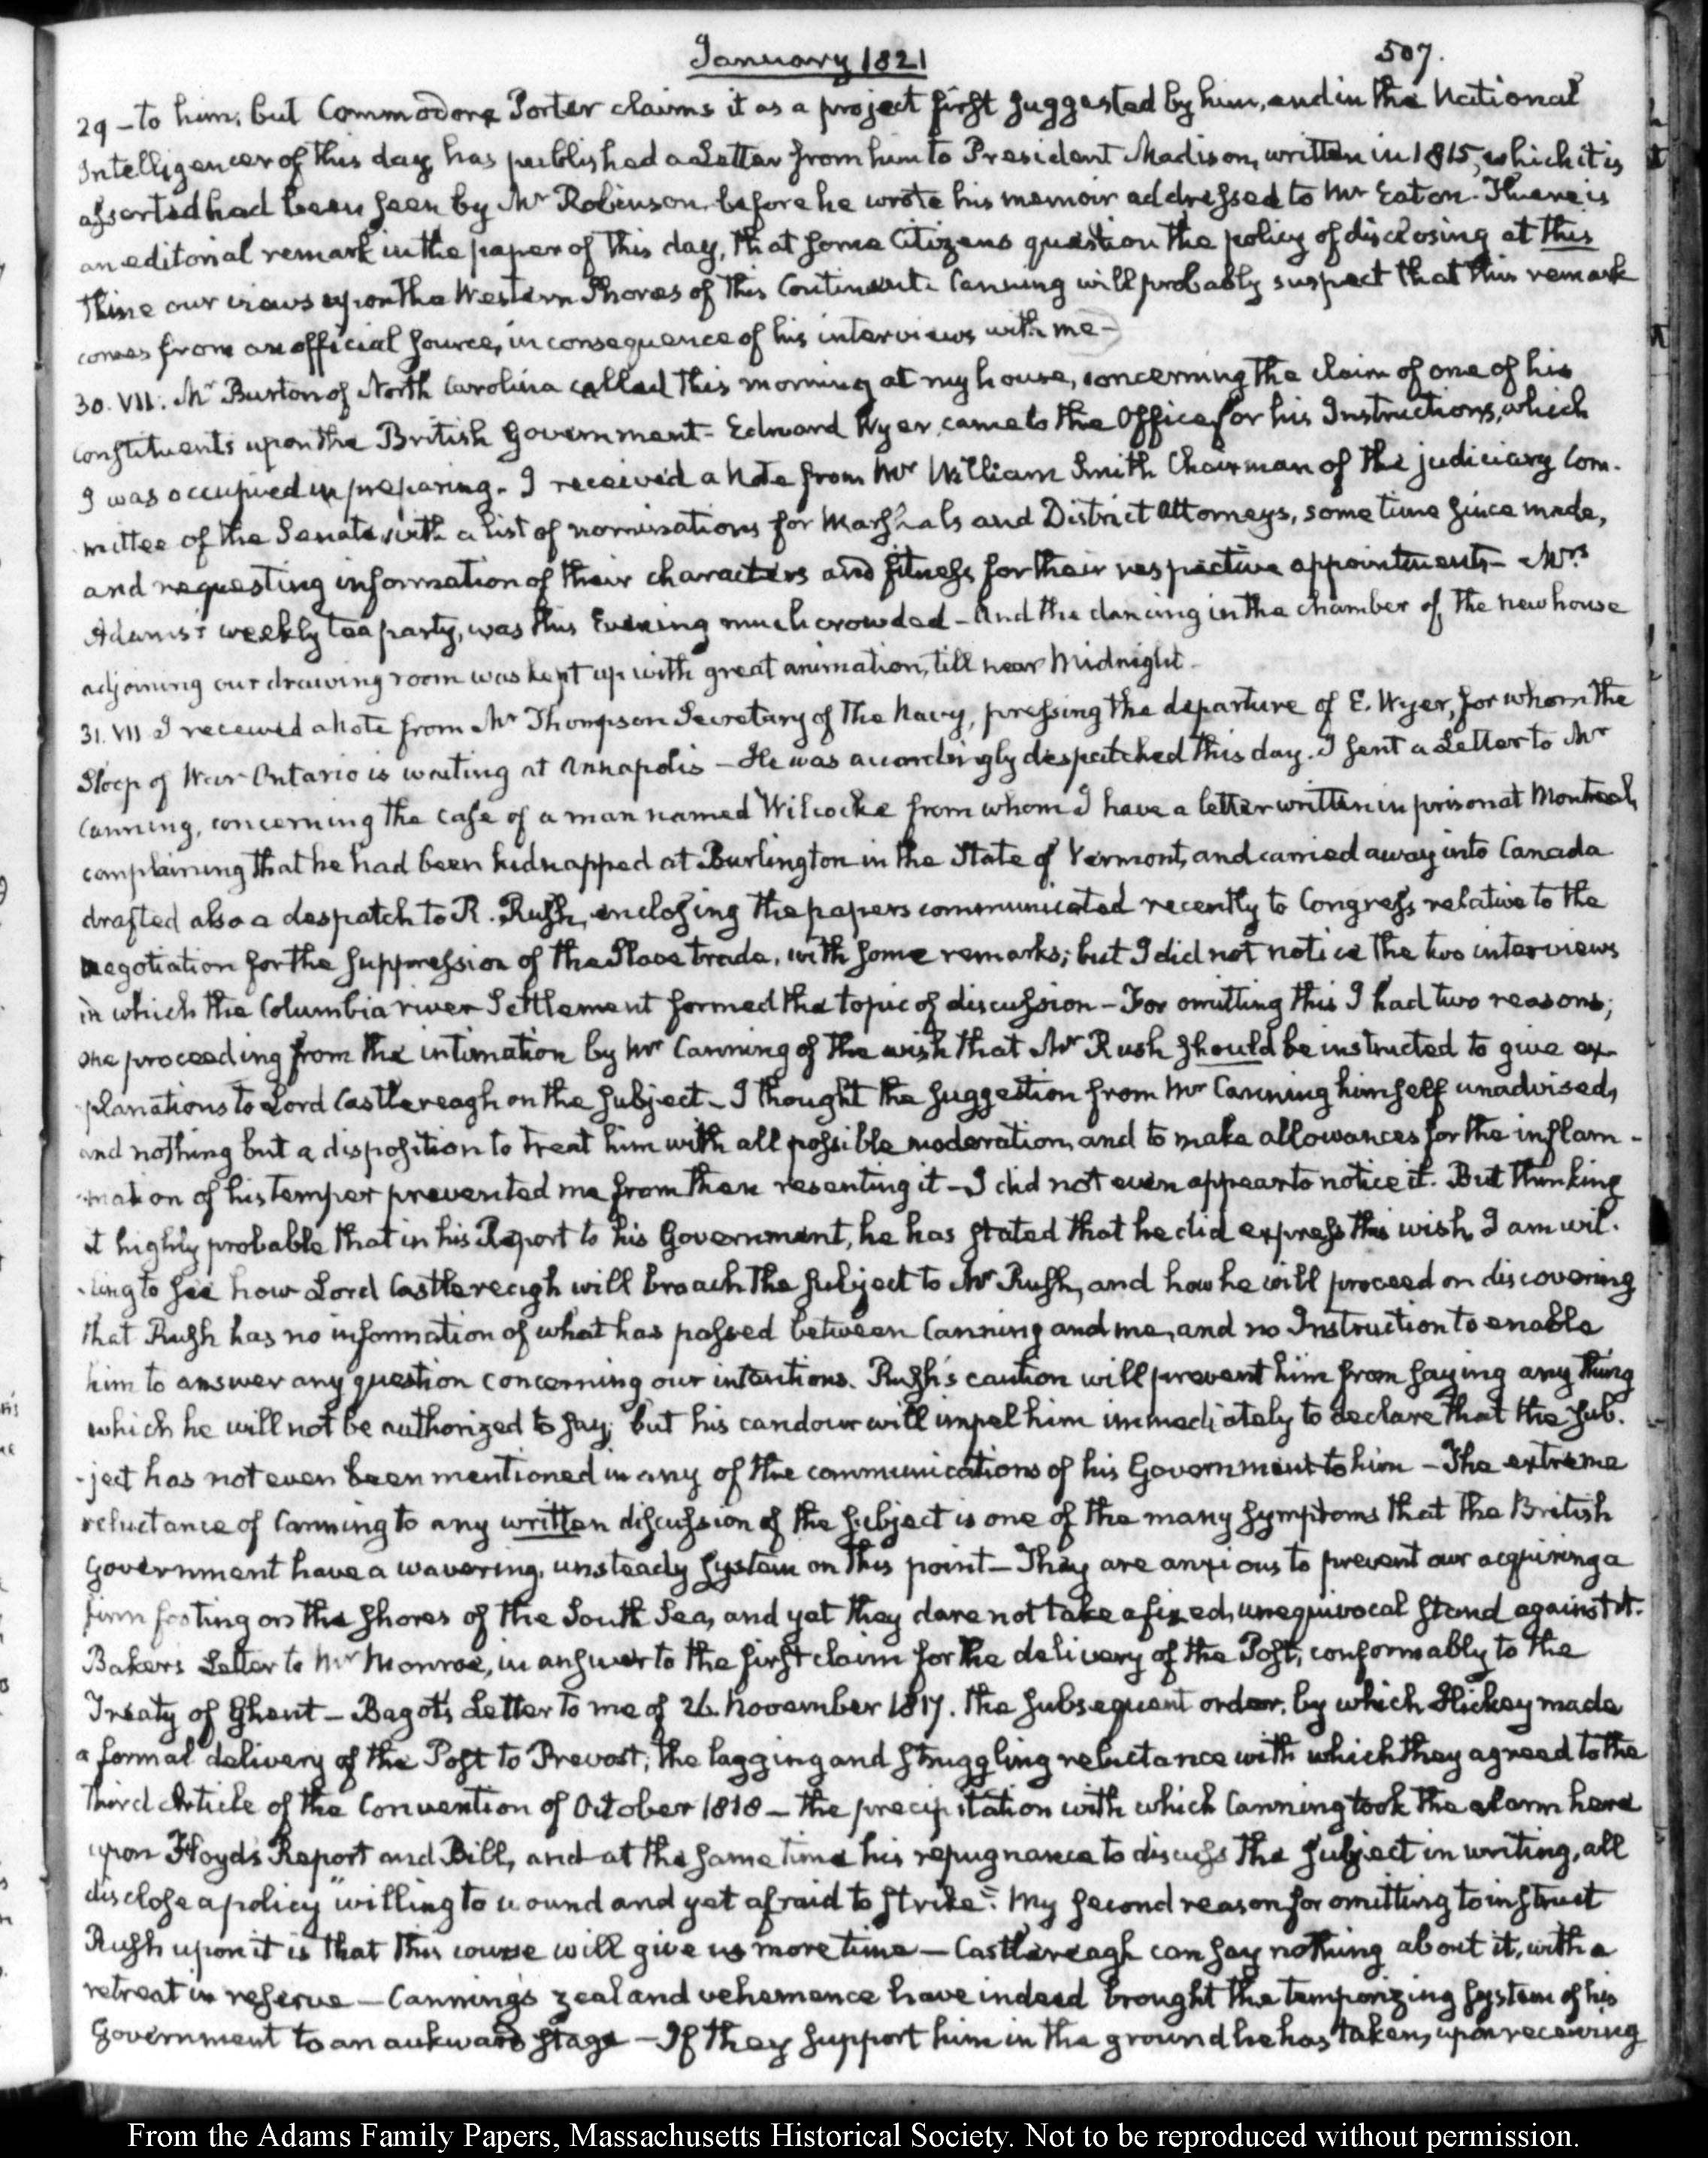 January 1821
507.
29 - to him; but Commodore Porter claims it as a project first suggested by him, and in the National
Intelligencer of this day, has published a Letter from him to President Madison, written in 1815, which it is
asserted had been seen by Mr Robinson, before he wrote his memoir addressed to Mr Eaton. There is
an editorial remark in the paper of this day, that some Citizens question the policy of disclosing at this
time our views upon the Western Shores of this Continent. Canning will probably suspect that this remark
comes from an official source, in consequence of his interviews with me -
30. VII. Mr Burton of North Carolina called this morning at my house, concerning the claim of one of his
constituents upon the British Government - Edward Wyer came to the Office for his Instructions, which
I was occupied in preparing - I received a Note from Mr William Smith Chairman of the judiciary Com-
mittee of the Senate with a list of nominations for Marshals and District Attorneys, some time since made,
and requesting information of their characters and fitness for their respective appointments - Mrs
Adams's weekly tea party, was this Evening much crowded - And the dancing in the chamber of the new house
adjoining our drawing room was kept up with great animation, till near Midnight -
31. VII I received a Note from Mr Thompson Secretary of the Navy, pressing the departure of E. Wyer, for whom the
Sloop of War Ontario is waiting at Annapolis - He was accordingly despatched this day. I sent a Letter to Mr
Canning, concerning the case of a man named Wilcocke from whom I have a letter written in prison at Montreal,
complaining that he had been kidnapped at Burlington in the State of Vermont, and carried away into Canada
drafted also a despatch to R. Rush, enclosing the papers communicated recently to Congress relative to the
negotiation for the suppression of the Slave trade, with some remarks; but I did not notice the two interviews
in which the Columbia river Settlement formed the topic of discussion - For omitting this I had two reasons;
one proceeding from the intimation by Mr Canning of the wish that Mr Rush should be instructed to give ex-
planations to Lord Castlereagh on the subject - I thought the suggestion from Mr Canning himself unadvised,
and nothing but a disposition to treat him with all possible moderation, and to make allowances for the inflam-
mation of his temper prevented me from then resenting it - I did not even appear to notice it. But thinking
it highly probable that in his Report to his Government, he has stated that he did express this wish, I am wil-
-ling to see how Lord Castlereagh will broach the subject to Mr Rush, and how he will proceed on discovering
that Rush has no information of what has passed between Canning and me, and no Instruction to enable
him to answer any question concerning our intentions. Rush's caution will prevent him from saying any thing
which he will not be authorized to say; but his candour will impel him immediately to declare that the sub-
-ject has not even been mentioned in any of the communications of his Government to him - The extreme
reluctance of Canning to any written discussion of the subject is one of the many symptoms that the British
Government have a wavering, unsteady system on this point - They are anxious to prevent our acquiring a
firm footing on the shores of the South Sea, and yet they dare not take a fixed, unequivocal stand against it.
Baker's Letter to Mr Monroe, in answer to the first claim for the delivery of the Post, conformably to the
Treaty of Ghent - Bagot's Letter to me of 26. November 1817. the subsequent order, by which Hickey made
a formal delivery of the Post to Prevost; the lagging and struggling reluctance with which they agreed to the
third Article of the Convention of October 1818 - the precipitation with which Canning took the alarm here
upon Floyd's Report and Bill, and at the same time his repugnance to discuss the subject in writing, all
disclose a policy "willing to wound and yet afraid to strike". My second reason for omitting to instruct
Rush upon it is that this course will give us more time - Castlereagh can say nothing about it, with a
retreat in reserve - Canning's zeal and vehemence have indeed brought the temporizing system of his
Government to an aukward stage - If they support him in the ground he has taken, upon receiving
From the Adams Family Papers, Massachusetts Historical Society. Not to be reproduced without permission.